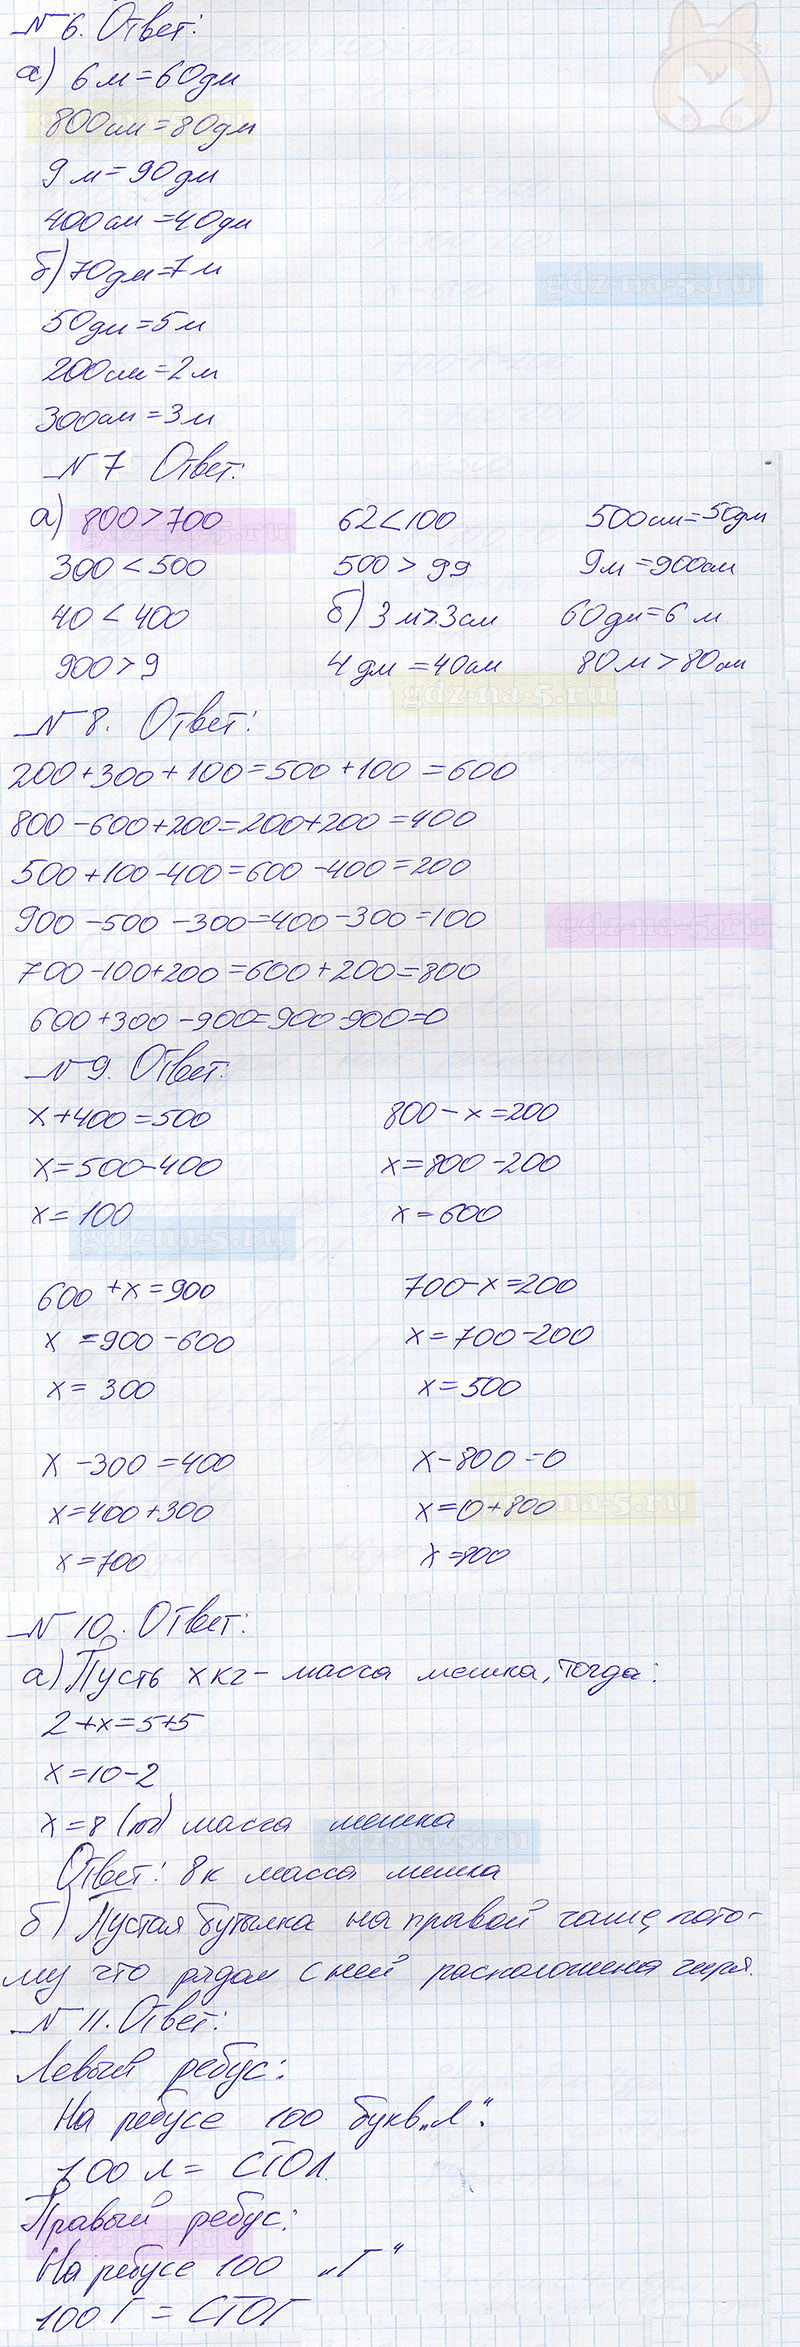 № 6. Ответ:
а) 6 м = 60 дм
800 см = 80 дм
9 м = 90 дм
400 см = 40 дм
б) 70 дм = 7 м
gdz-na-5.ru
50 дм = 5 м
200 см = 2 м
300 см = 3 м
№ 7 Ответ:
а) 800 > 700 62 < 100 500 см = 50 дм
300 < 500 500 > 99 9 м = 900 см
40 < 400 б) 3 м > 3 см 60 дм = 6 м
900 > 9 4 дм = 40 см 80 м > 80 см
gdz-na-5.ru
№ 8. Ответ:
200 + 300 + 100 = 500 + 100 = 600
800 - 600 + 200 = 200 + 200 = 400
500 + 100 - 400 = 600 - 400 = 200
900 - 500 - 300 = 400 - 300 = 100
gdz-na-5.ru
700 - 100 + 200 = 600 + 200 = 800
600 + 300 - 900 = 900 - 900 = 0
№ 9. Ответ:
x + 400 = 500 800 - x = 200
x = 500 - 400 x = 800 - 200
x = 100 x = 600
gdz-na-5.ru
600 + x = 900 700 - x = 200
x = 900 - 600 x = 700 - 200
x = 300 x = 500
x - 300 = 400 x - 800 = 0
x = 400 + 300 x = 0 + 800
x = 700 x = 800
№ 10. Ответ:
а) Пусть x кг - масса мешка, тогда:
2 + x = 5 + 5
x = 10 - 2
x = 8 (кг) масса мешка
Ответ: 8 к масса мешка
б) Пустая бутылка на правой чаше, пото-
му что рядом с ней расположена гиря.
№ 11. Ответ:
Левый ребус:
На ребусе 100 букв „Л".
100 л = СТОЛ.
Правый ребус:
На ребусе 100 „Г"
100 Г = СТОГ